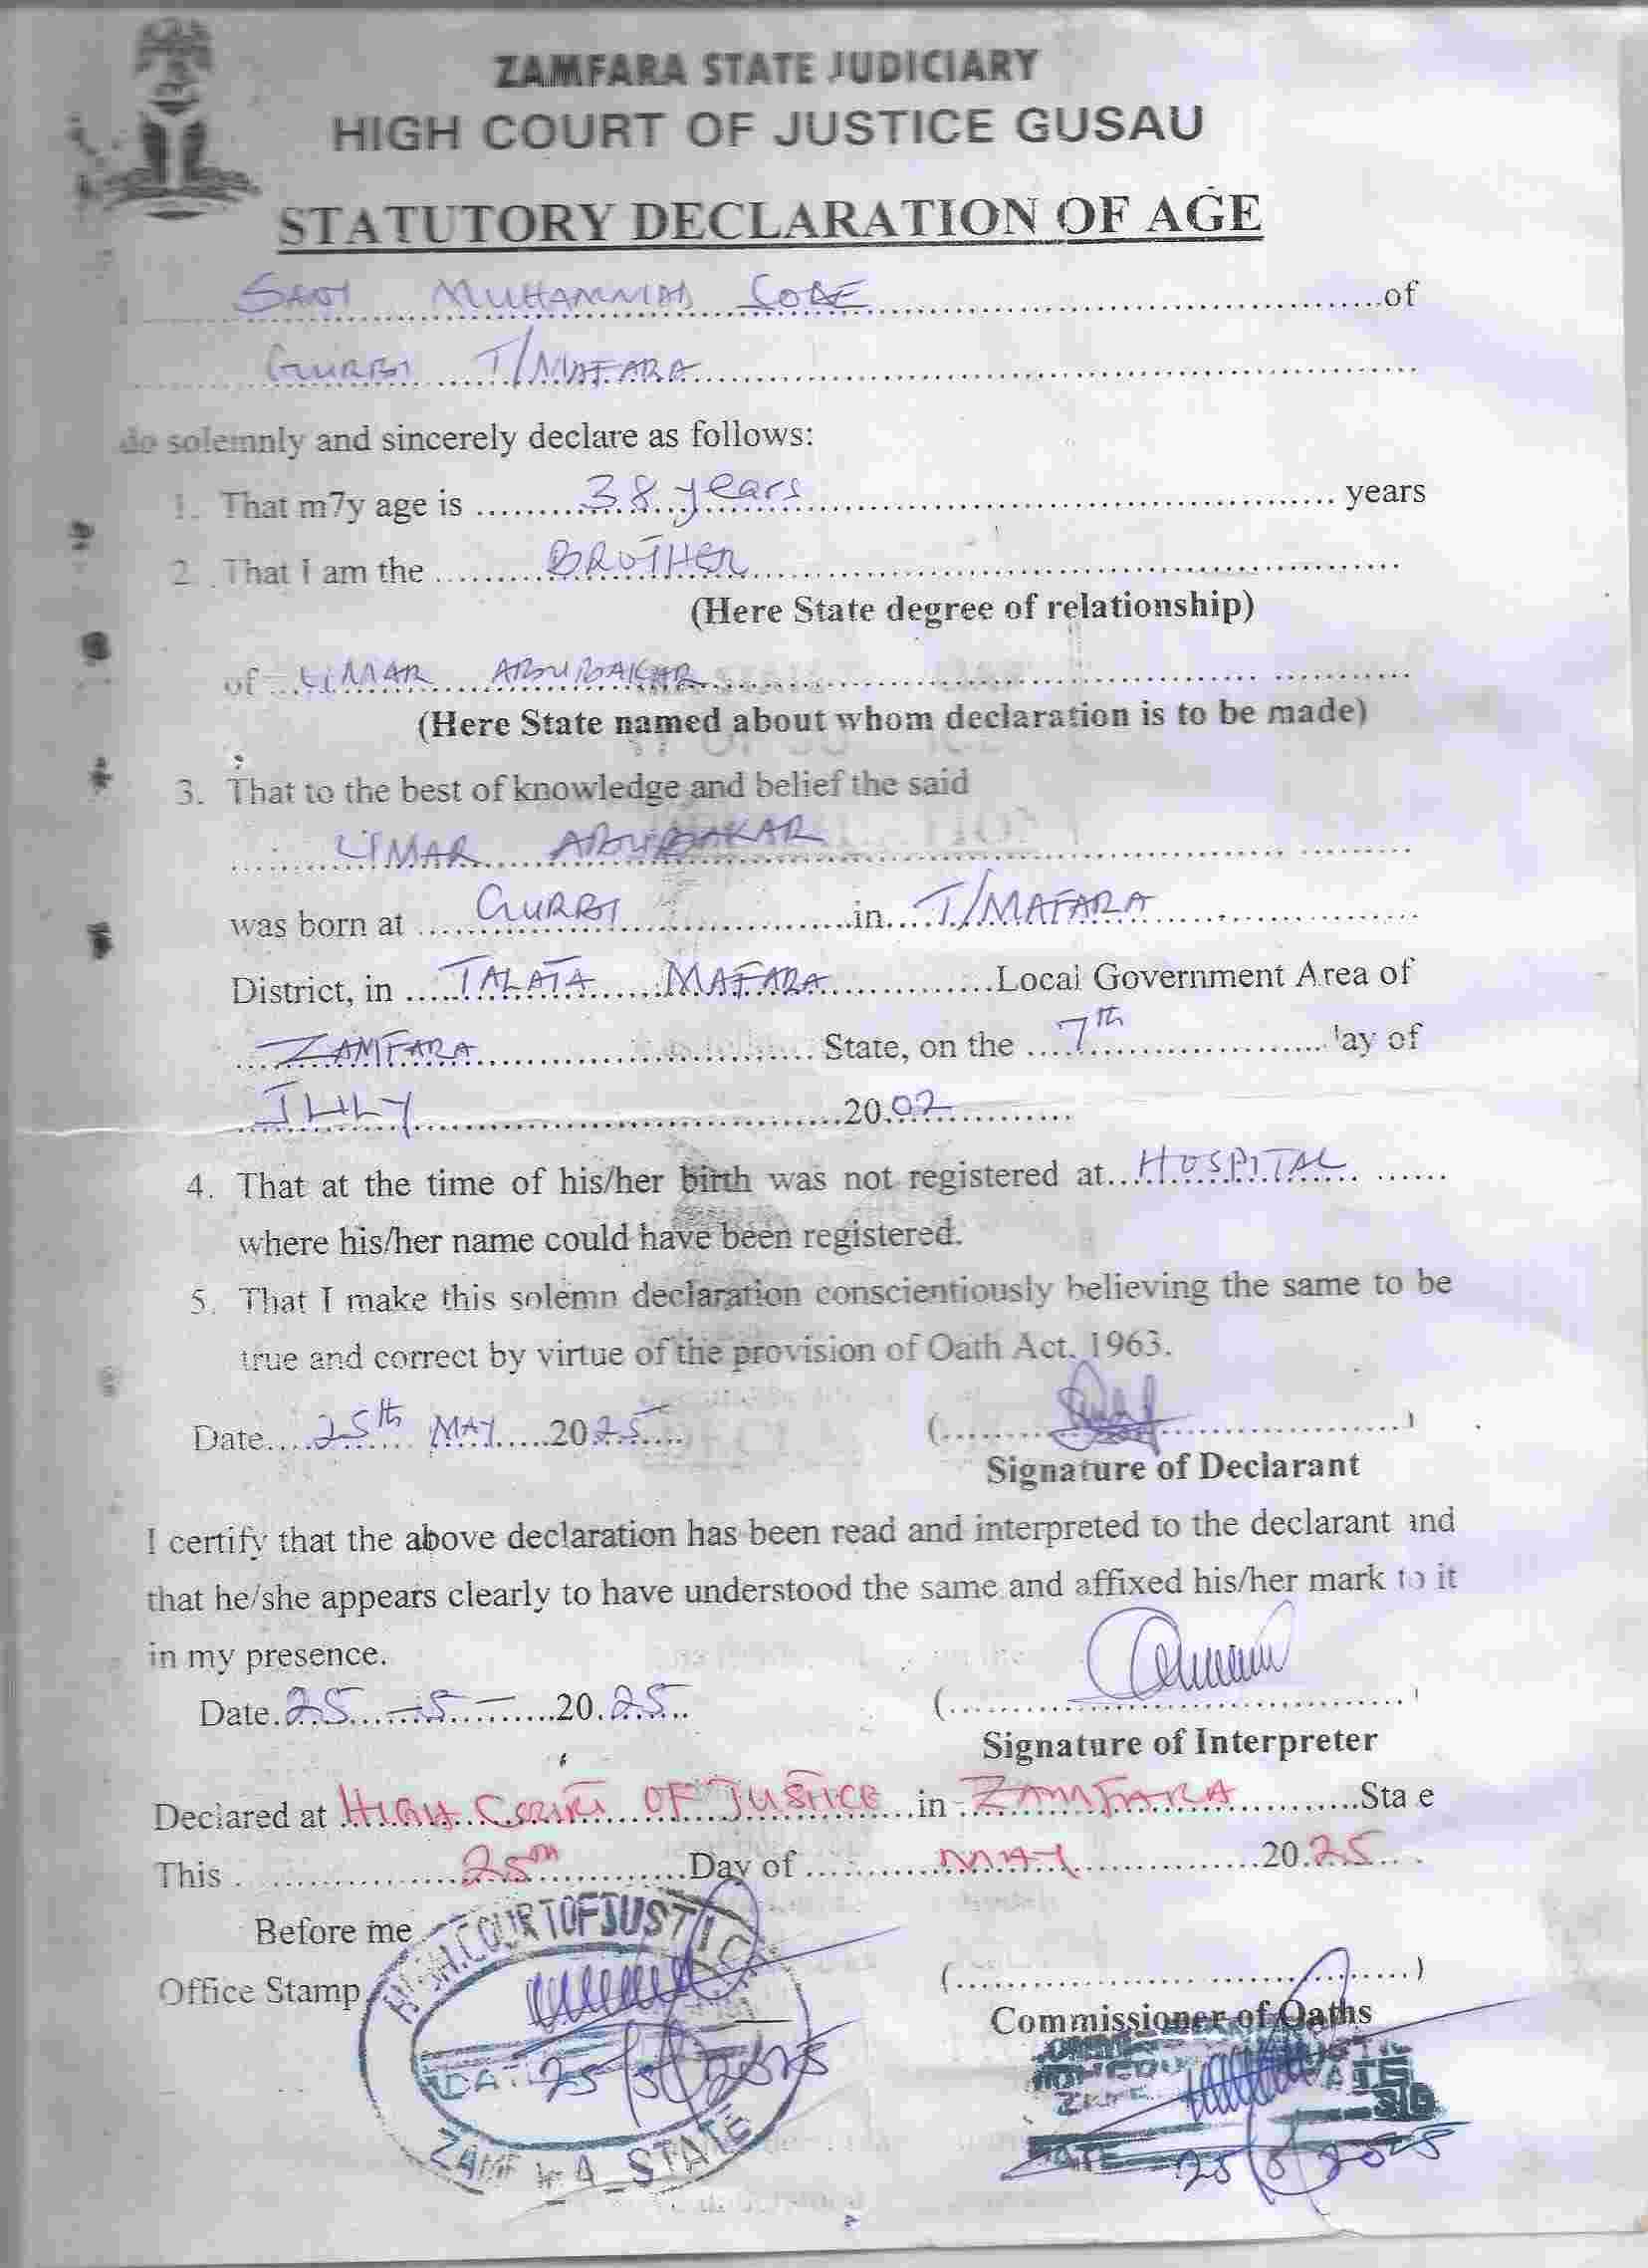 ZAMFARA STATE JUDICIARY
HIGH COURT OF JUSTICE GUSAU
STATUTORY DECLARATION OF AGE
I SANI MUHAMMAD CODE of
GURBI T/MAFARA
do solemnly and sincerely declare as follows:
1. That m7y age is 38 years years
2. That I am the BROTHER
(Here State degree of relationship)
of UMAR ABUBAKAR
(Here State named about whom declaration is to be made)
3. That to the best of knowledge and belief the said
UMAR ABUBAKAR
was born at GURBI in T/MAFARA
District, in TALATA MAFARA Local Government Area of
ZAMFARA State, on the 7th day of
JULY 2002
4. That at the time of his/her birth was not registered at HOSPITAL
where his/her name could have been registered.
5. That I make this solemn declaration conscientiously believing the same to be
true and correct by virtue of the provision of Oath Act. 1963.
Date 25th MAY 2025 ( )
Signature of Declarant
I certify that the above declaration has been read and interpreted to the declarant and
that he/she appears clearly to have understood the same and affixed his/her mark to it
in my presence.
Date 25 -5- 2025 ( )
Signature of Interpreter
Declared at HIGH COURT OF JUSTICE in ZAMFARA State
This 25TH Day of MAY 2025
Before me
HIGH COURT OF JUSTICE
Office Stamp ( )
Commissioner of Oaths
DATE 25/5/2025
ZAMFARA STATE
DATE 25/5/2025